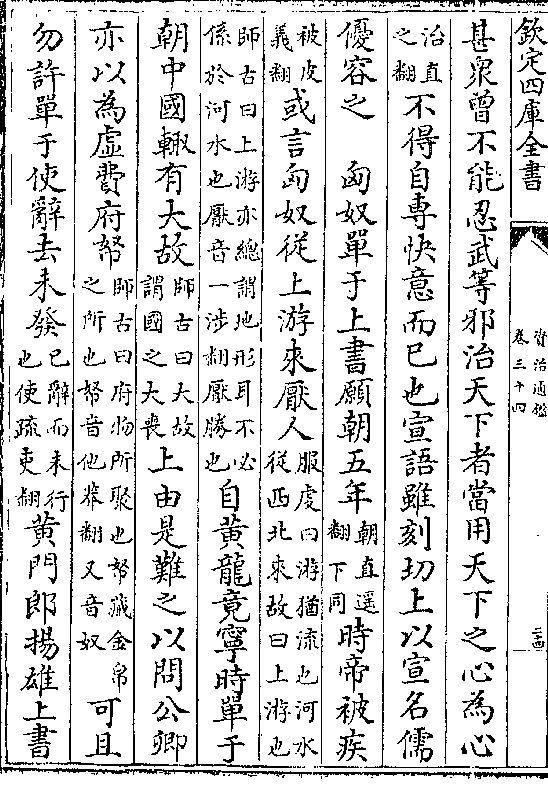 欽定四庫全書
資治通鑑
卷三十四
二四
甚衆曾不能忍武等邪治天下者當用天下之心為心
治直
之翻
不得自專快意而已也宣語雖刻切上以宣名儒
優容之 匈奴單于上書願朝五年
朝直遥
翻下同
時帝被疾
被皮
義翻
或言匈奴從上游來厭人
服䖍曰游猶流也河水
從西北來故曰上游也
師古曰上游亦總謂地形耳不必
係於河水也厭音一涉翻厭勝也
自黄龍竟寧時單于
朝中國輙有大故
師古曰大故
謂國之大喪
上由是難之以問公卿
亦以為虚費府帑
師古曰府物所聚也帑藏金帛
之所也帑音他莽翻又音奴
可且
勿許單于使辭去未發
已辭而未行
也使疏吏翻
黄門郎揚雄上書